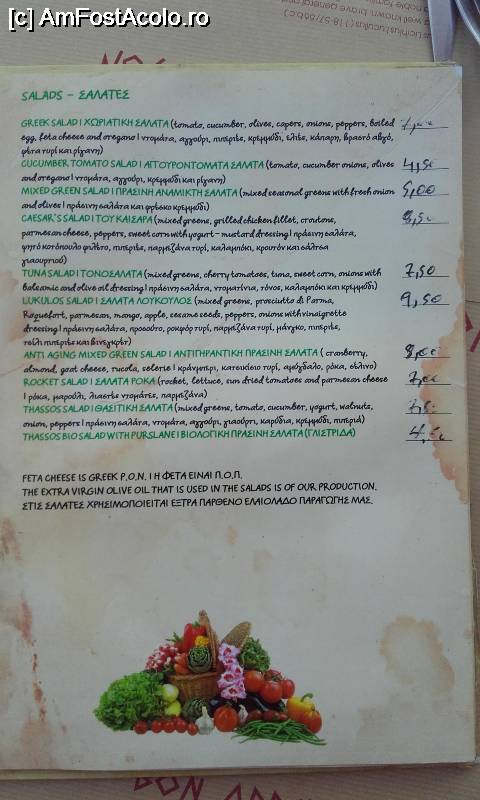 [c] AmFostAcolo.ro
SALADS - ΣΑΛΑΤΕΣ
GREEK SALAD | ΧΩΡΙΑΤΙΚΗ ΣΑΛΑΤΑ (tomato, cucumber, olives, capers, onions, peppers, boiled
egg, feta cheese and oregano | ντομάτα, αγγούρι, πιπεριές, κρεμμύδι, ελιές, κάπαρη, βραστό αβγό,
φέτα τυρί και ρίγανη)
CUCUMBER TOMATO SALAD | ΑΓΓΟΥΡΟΝΤΟΜΑΤΑ ΣΑΛΑΤΑ (tomato, cucumber onions, olives 4,50
and oregano | ντομάτα, αγγούρι, κρεμμύδι και ρίγανη)
MIXED GREEN SALAD | ΠΡΑΣΙΝΗ ΑΝΑΜΙΚΤΗ ΣΑΛΑΤΑ (mixed seasonal greens with fresh onion 5,00
and olives | πράσινη σαλάτα και φρέσκο κρεμμύδι)
CAESAR'S SALAD | ΤΟΥ ΚΑΙΣΑΡΑ (mixed greens, grilled chicken fillet, croutons,
parmesan cheese, peppers, sweet corn with yogurt - mustard dressing | πράσινη σαλάτα,
ψητό κοτόπουλο φιλέτο, πιπεριές, παρμεζάνα τυρί, καλαμπόκι, κρουτόν και σάλτσα
γιαουρτιού)
TUNA SALAD | ΤΟΝΟΣΑΛΑΤΑ (mixed greens, cherry tomatoes, tuna, sweet corn, onions with 7,50
balsamic and olive oil dressing | πράσινη σαλάτα, ντοματίνια, τόνος, καλαμπόκι και κρεμμύδι)
LUKULOS SALAD | ΣΑΛΑΤΑ ΛΟΥΚΟΥΛΟΣ (mixed greens, prosciutto di Parma, 9,50
Roquefort, parmesan, mango, apple, sesame seeds, peppers, onions with vinaigrette
dressing | πράσινη σαλάτα, προσούτο, ροκφόρ τυρί, παρμεζάνα τυρί, μάνγκο, πιπεριές,
τσίλι πιπεριές και βινεγκρέτ)
ANTI AGING MIXED GREEN SALAD | ΑΝΤΙΓΗΡΑΝΤΙΚΗ ΠΡΑΣΙΝΗ ΣΑΛΑΤΑ ( cranberry,
almond, goat cheese, rucola, seleric | κράνμπερι, κατσικίσιο τυρί, αμύγδαλο, ρόκα, σέλινο)
ROCKET SALAD | ΣΑΛΑΤΑ ΡΟΚΑ (rocket, lettuce, sun dried tomatoes and parmesan cheese
| ρόκα, μαρούλι, λιαστές ντομάτες, παρμεζάνα)
THASSOS SALAD | ΘΑΣΙΤΙΚΗ ΣΑΛΑΤΑ (mixed greens, tomato, cucumber, yogurt, walnuts,
onion, peppers | πράσινη σαλάτα, ντομάτα, αγγούρι, γιαούρτι, καρύδια, κρεμμύδι, πιπεριά)
THASSOS BIO SALAD WITH PURSLANE | ΒΙΟΛΟΓΙΚΗ ΠΡΑΣΙΝΗ ΣΑΛΑΤΑ (ΓΛΙΣΤΡΙΔΑ)
FETA CHEESE IS GREEK P.O.N. | Η ΦΕΤΑ ΕΙΝΑΙ Π.Ο.Π.
THE EXTRA VIRGIN OLIVE OIL THAT IS USED IN THE SALADS IS OF OUR PRODUCTION.
ΣΤΙΣ ΣΑΛΑΤΕΣ ΧΡΗΣΙΜΟΠΟΙΕΙΤΑΙ ΕΞΤΡΑ ΠΑΡΘΕΝΟ ΕΛΑΙΟΛΑΔΟ ΠΑΡΑΓΩΓΗΣ ΜΑΣ.